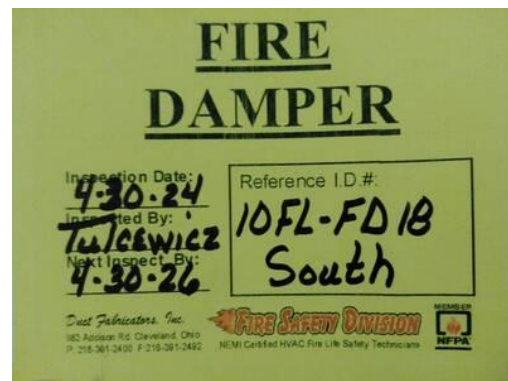 FIRE
DAMPER
Inspection Date:
4-30-24
Inspected By:
Tulcewicz
Next Inspect. By:
4-30-26
Reference I.D.#:
10FL-FD18
South
Duct Fabricators, Inc.
982 Addison Rd. Cleveland, Ohio
P: 216-391-2400 F: 216-391-2492
FIRE SAFETY DIVISION
NEMI Certified HVAC Fire Life Safety Technicians
MEMBER
NFPA